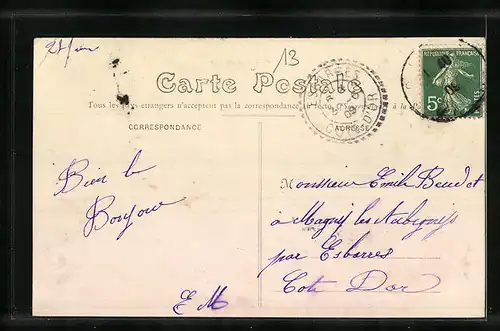 13
Carte Postale
Tous les pays étrangers n'acceptent pas la correspondance
à la
RÉPUBLIQUE FRANÇAISE
5c
CORRESPONDANCE
ADRESSE
ESBARRES
09
CÔTE-D'OR
Bien le
Bonjour
E M
Monsieur Emile Beudot
à Magny les Aubignys
par Esbarres
Cote Dor